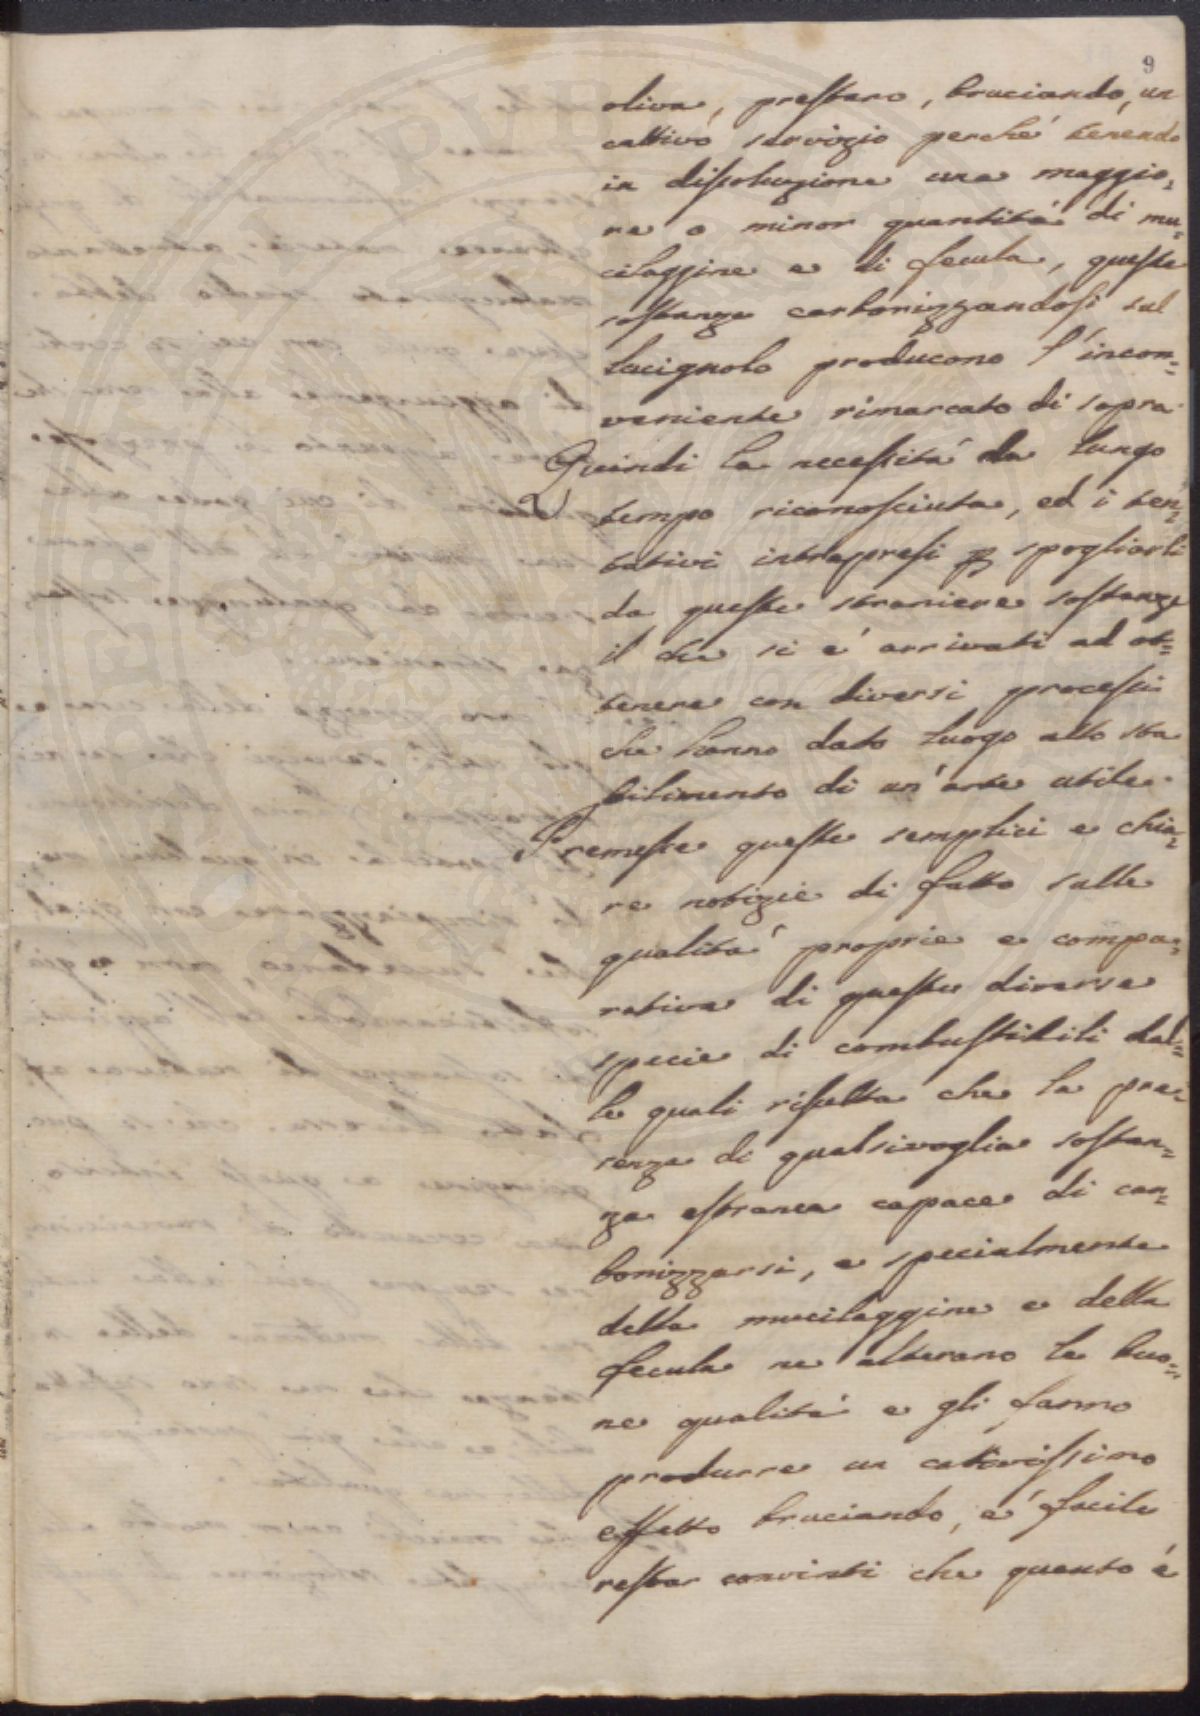 9
oliva, prestano, bruciando, un
cattivo servizio perché tenendo
in dissoluzione una maggio=
re o minor quantità di mu=
cilaggine e di fecula, queste
sostanze carbonizzandosi sul
lucignolo producono l'incon=
veniente rimarcato di sopra.
Quindi la necessità da lungo
tempo riconosciuta, ed i ten=
tativi intrapresi p spogliarli
da queste straniere sostanze
il che si è arrivati ad ot=
tenere con diversi processi
che hanno dato luogo allo sta
bilimento di un'arte utile.
Premesse queste semplici e chia=
re notizie di fatto sulle
qualità proprie e compa=
rative di queste diverse
specie di combustibili dal=
le quali risulta che la pre=
senza di qualsivoglia sostan=
za estranea capace di car=
bonizzarsi, e specialmente
della mucilaggine e della
fecula ne alterano le buo=
ne qualità e gli fanno
produrre un cattivissimo
effetto bruciando, è facile
restar convinti che quanto è